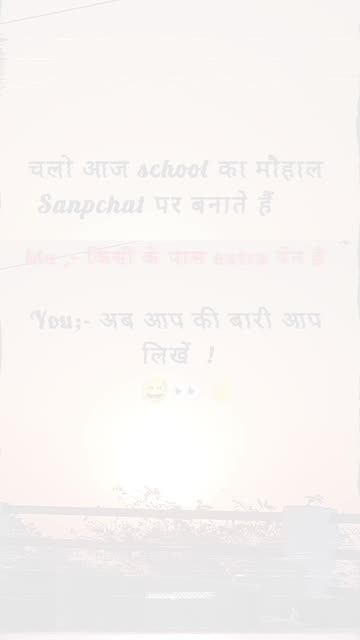 चलो आज school का मौहाल
Sanpchat पर बनाते हैं
Me ;- किसी के पास extra पेन है
You;- अब आप की बारी आप
लिखें !